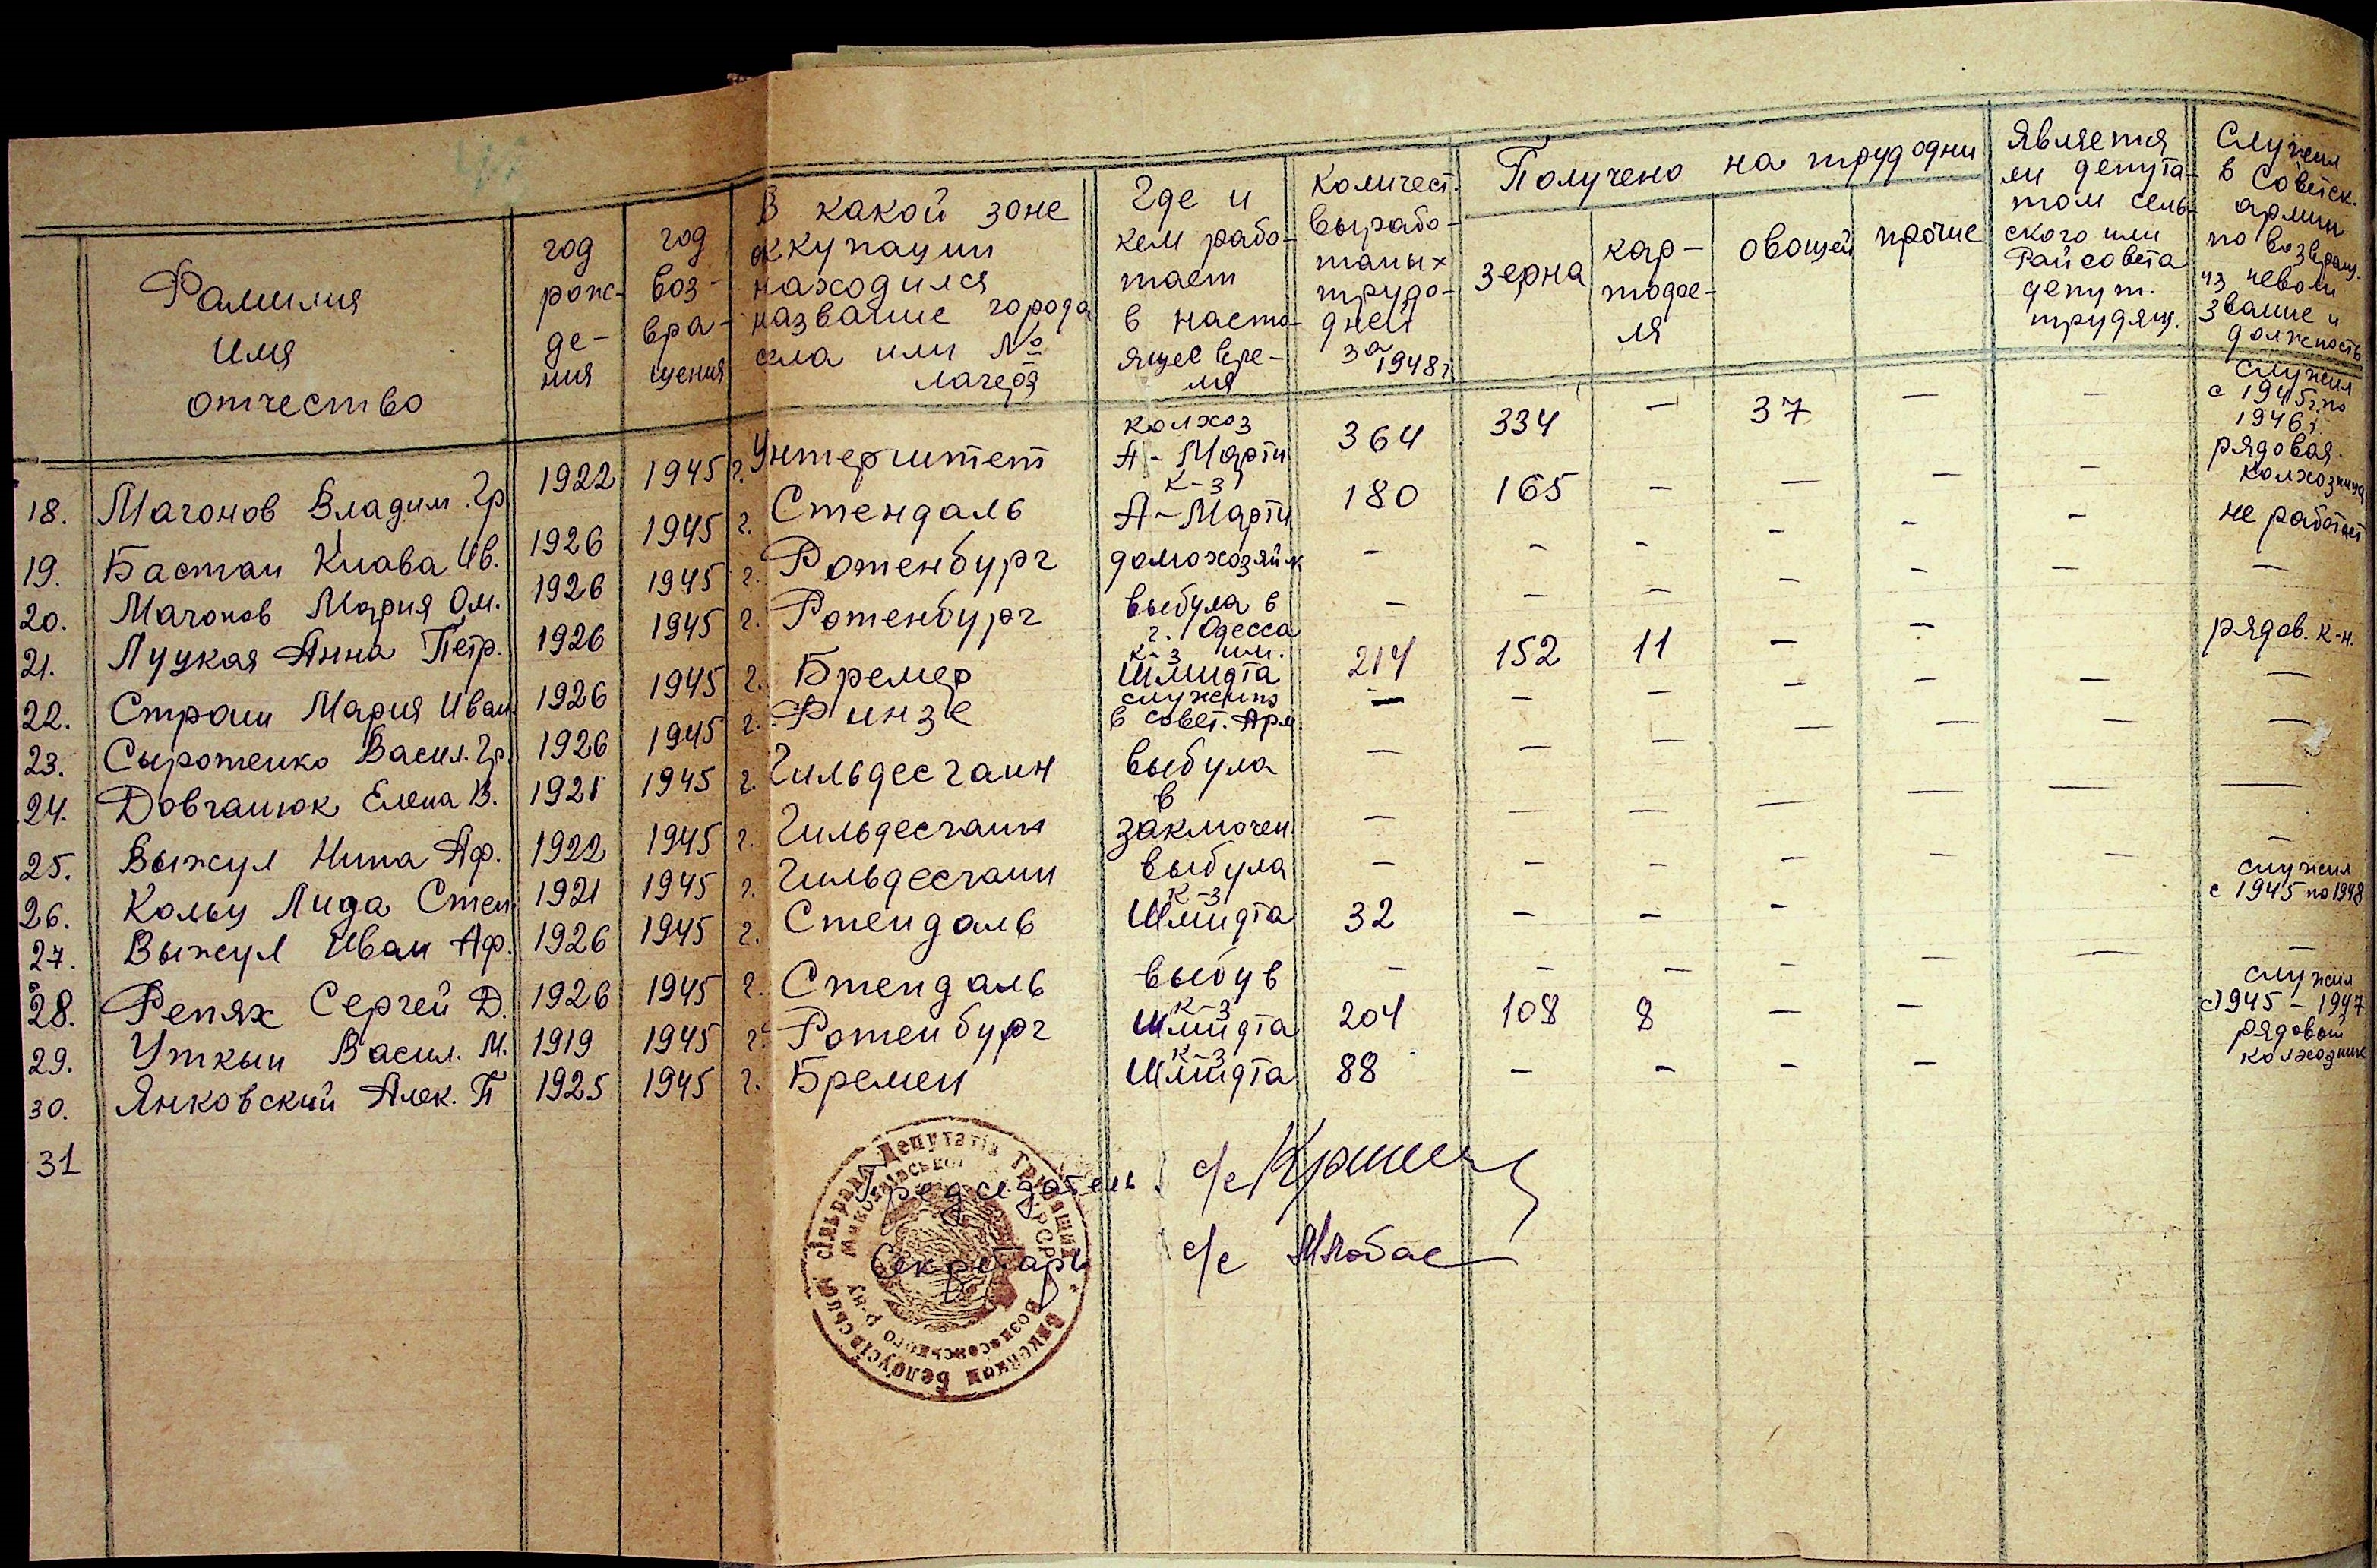 Фамилия
имя
отчество
год
рож-
де-
ния
год
воз-
вра-
щения
В какой зоне
оккупации
находился
название города
села или №
лагеря
Где и
кем рабо-
тает
в насто-
ящее вре-
мя
Количест.
вырабо-
таных
трудо-
дней
за
1948 г.
Получено на трудодни
зерна
кар-
тофе-
ля
овощей
прочие
Является
ли депута-
том сель-
ского или
Райсовета
депут.
трудящ.
Служил
в Советск.
армии
по возвращ.
из неволи
звание и
должность
18. Магонов Владим. Гр. 1922 1945 г. Унтерштет колхоз А-Марти 364 334 — 37 — — служил с 1945 г. по 1946 г. рядовая
19. Бастан Клава Ив. 1926 1945 г. Стендаль к-з А-Марти 180 165 — — — — колхозница
20. Магонов Мария Ом. 1926 1945 г. Ротенбург домохозяйк - - - - - - не работает
21. Луцкая Анна Петр. 1926 1945 г. Ротенбург выбула в г. Одесса — — — — — — —
22. Страш Мария Иван. 1926 1945 г. Бремер к-з им. Шмидта 214 152 11 — — рядов. к-н.
23. Сыротенко Васил. Гр. 1926 1945 г. Финзе служить в совет. Арм. — — — — — — —
24. Довганюк Елена В. 1921 1945 г. Гильдесгаин выбула — — — — — — —
25. Выжул Нина Аф. 1922 1945 г. Гильдесгаин в заключен. — — — — — — —
26. Кольц Лида Степ. 1921 1945 г. Гильдесгаин выбула — — — — — — —
27. Выжул Иван Аф. 1926 1945 г. Стендаль к-з Шмидта 32 — — — служил с 1945 по 1948
28. Репях Сергей Д. 1926 1945 г. Стендаль выбув — — — — — — —
29. Уткын Васил. М. 1919 1945 г. Ротенбург к-з Шмидта 204 108 8 — — служил с 1945 - 1947
30. Янковский Алек. П 1925 1945 г. Бремен к-з Шмидта 88 — — — — рядовой колхозник
31
Председатель с/с
Секретарь с/с
Депутатів Трудящих
Білоусівської сільрада
Вознесенського р-ну
Миколаївської
УРСР